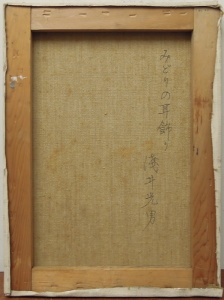 みどりの耳飾り
浅井光男